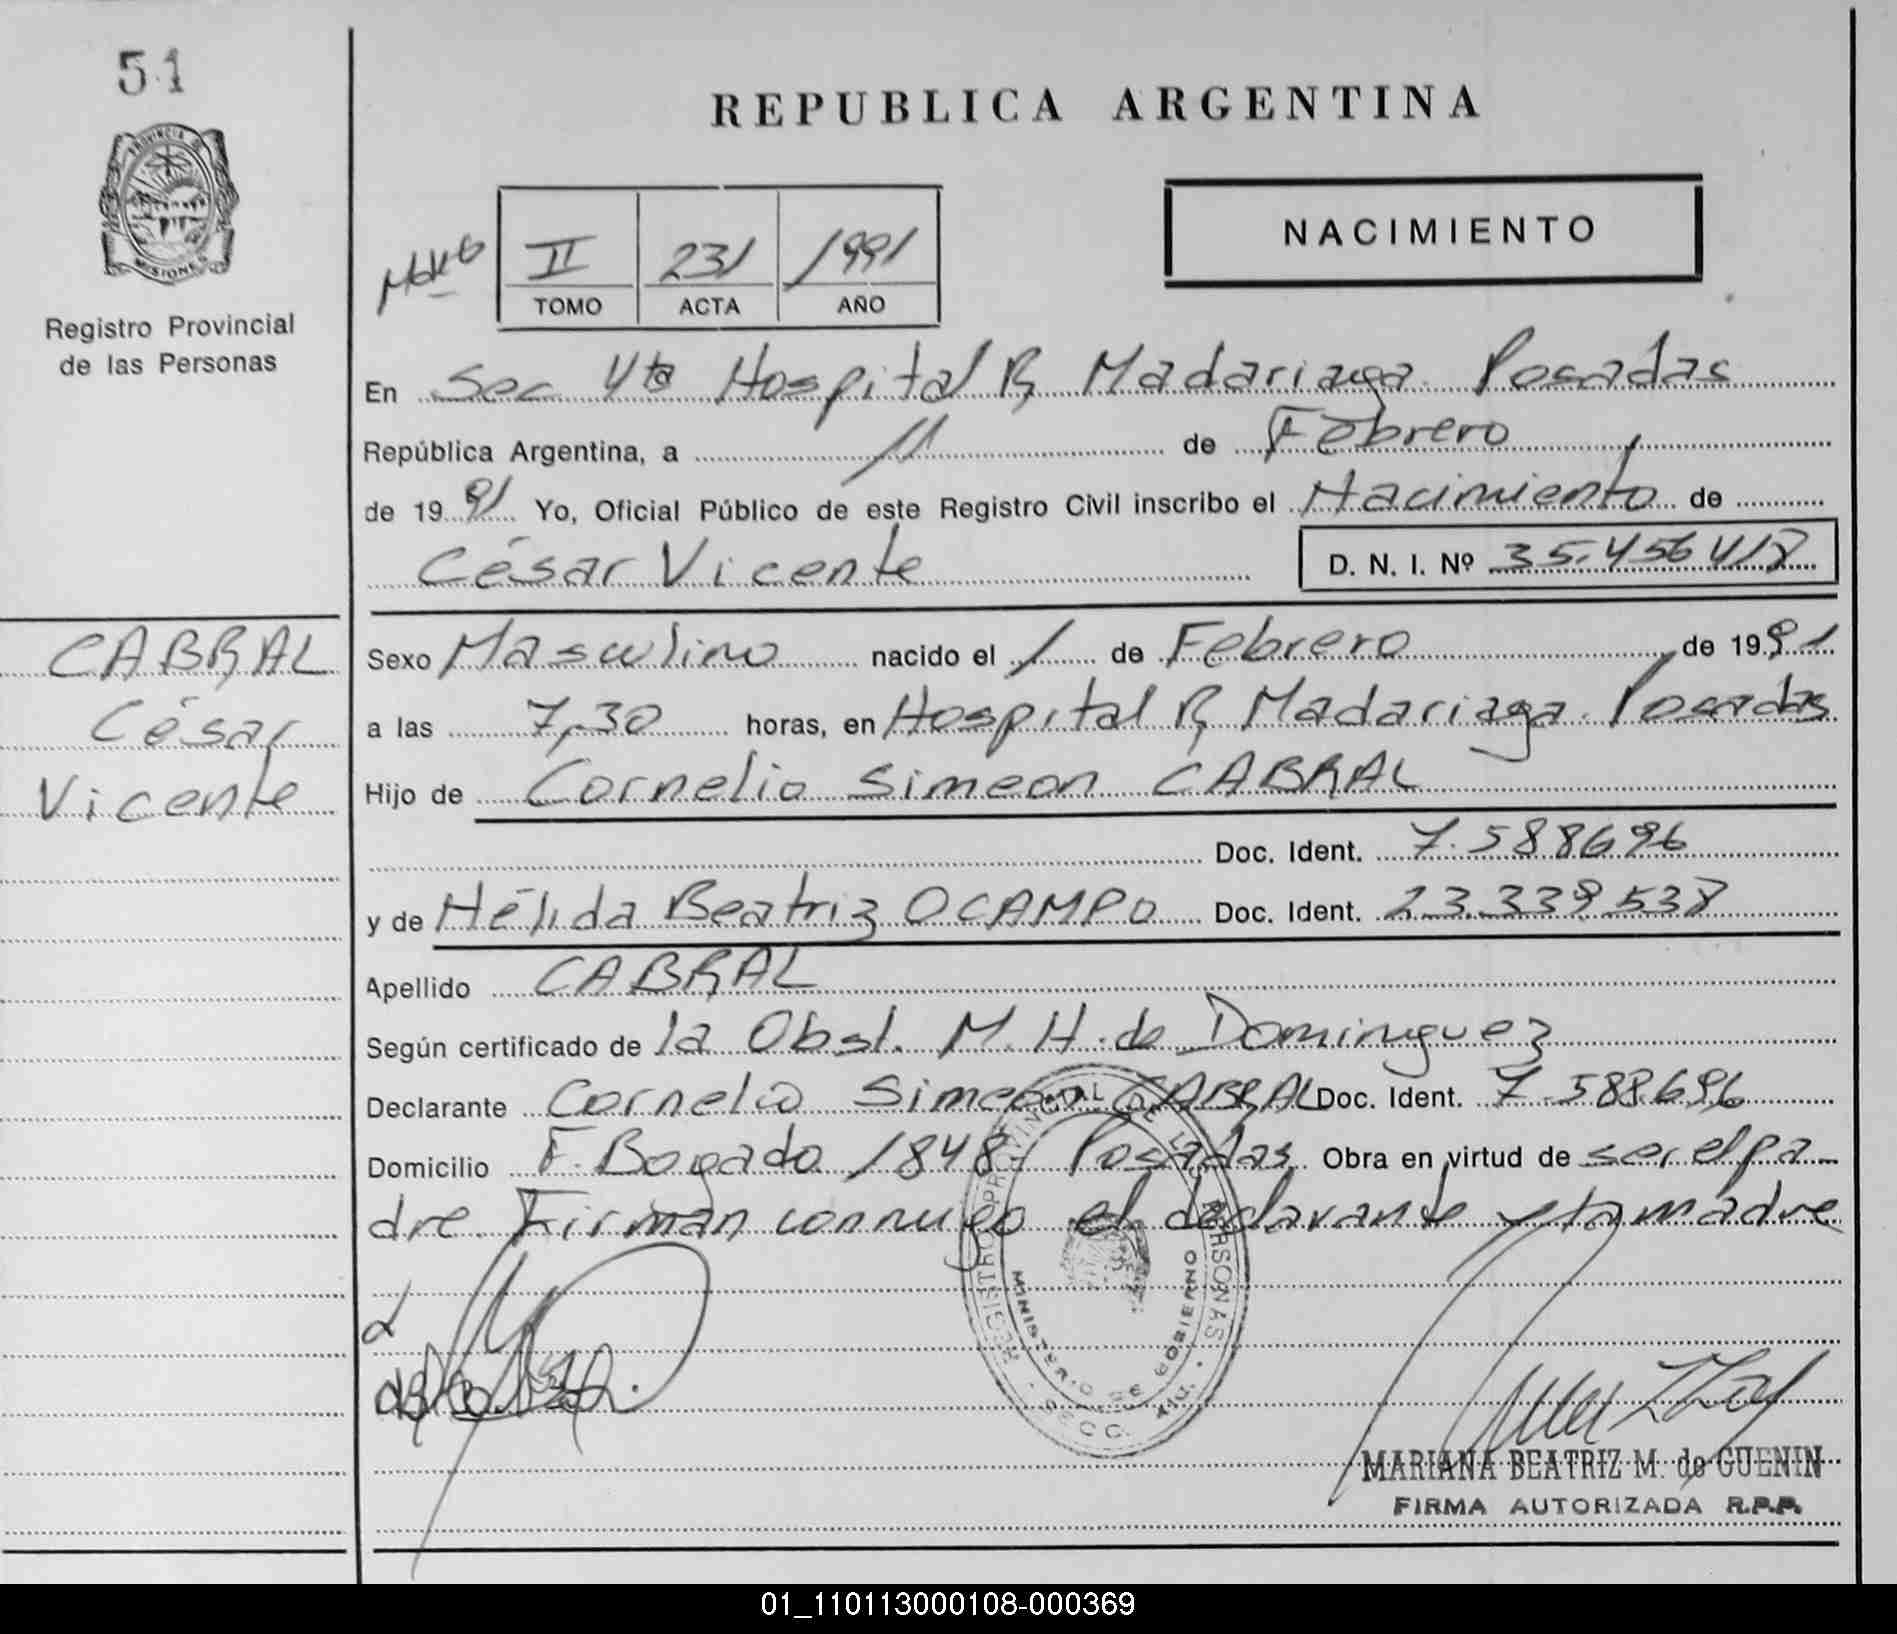 51
REPUBLICA ARGENTINA
PROVINCIA DE
MISIONES
Registro Provincial
de las Personas
NACIMIENTO
II 231 1991
TOMO ACTA AÑO
En Sec 4ta Hospital R, Madariaga. Posadas
República Argentina, a 11 de Febrero
de 1991 Yo, Oficial Público de este Registro Civil inscribo el Nacimiento de
César Vicente D. N. I. Nº 35.456418
CABRAL
César
Vicente
Sexo Masculino nacido el 1 de Febrero de 1991
a las 7,30 horas, en Hospital R, Madariaga. Posadas
Hijo de Cornelio Simeon CABRAL
Doc. Ident. 7.588696
y de Nélida Beatriz OCAMPO Doc. Ident. 23.339.538
Apellido CABRAL
Según certificado de la Obst. M. H. de Dominguez
Declarante Cornelio Simeon CABRAL Doc. Ident. 7.588.696
Domicilio F. Bogado 1848- Posadas Obra en virtud de ser el pa-
dre. Firman conmigo el declarante y la madre
REGISTRO PROVINCIAL DE LAS PERSONAS
MINISTERIO DE GOBIERNO
SECC. 4ta.
MARIANA BEATRIZ M. de GUENIN
FIRMA AUTORIZADA R.P.P.
01_110113000108-000369